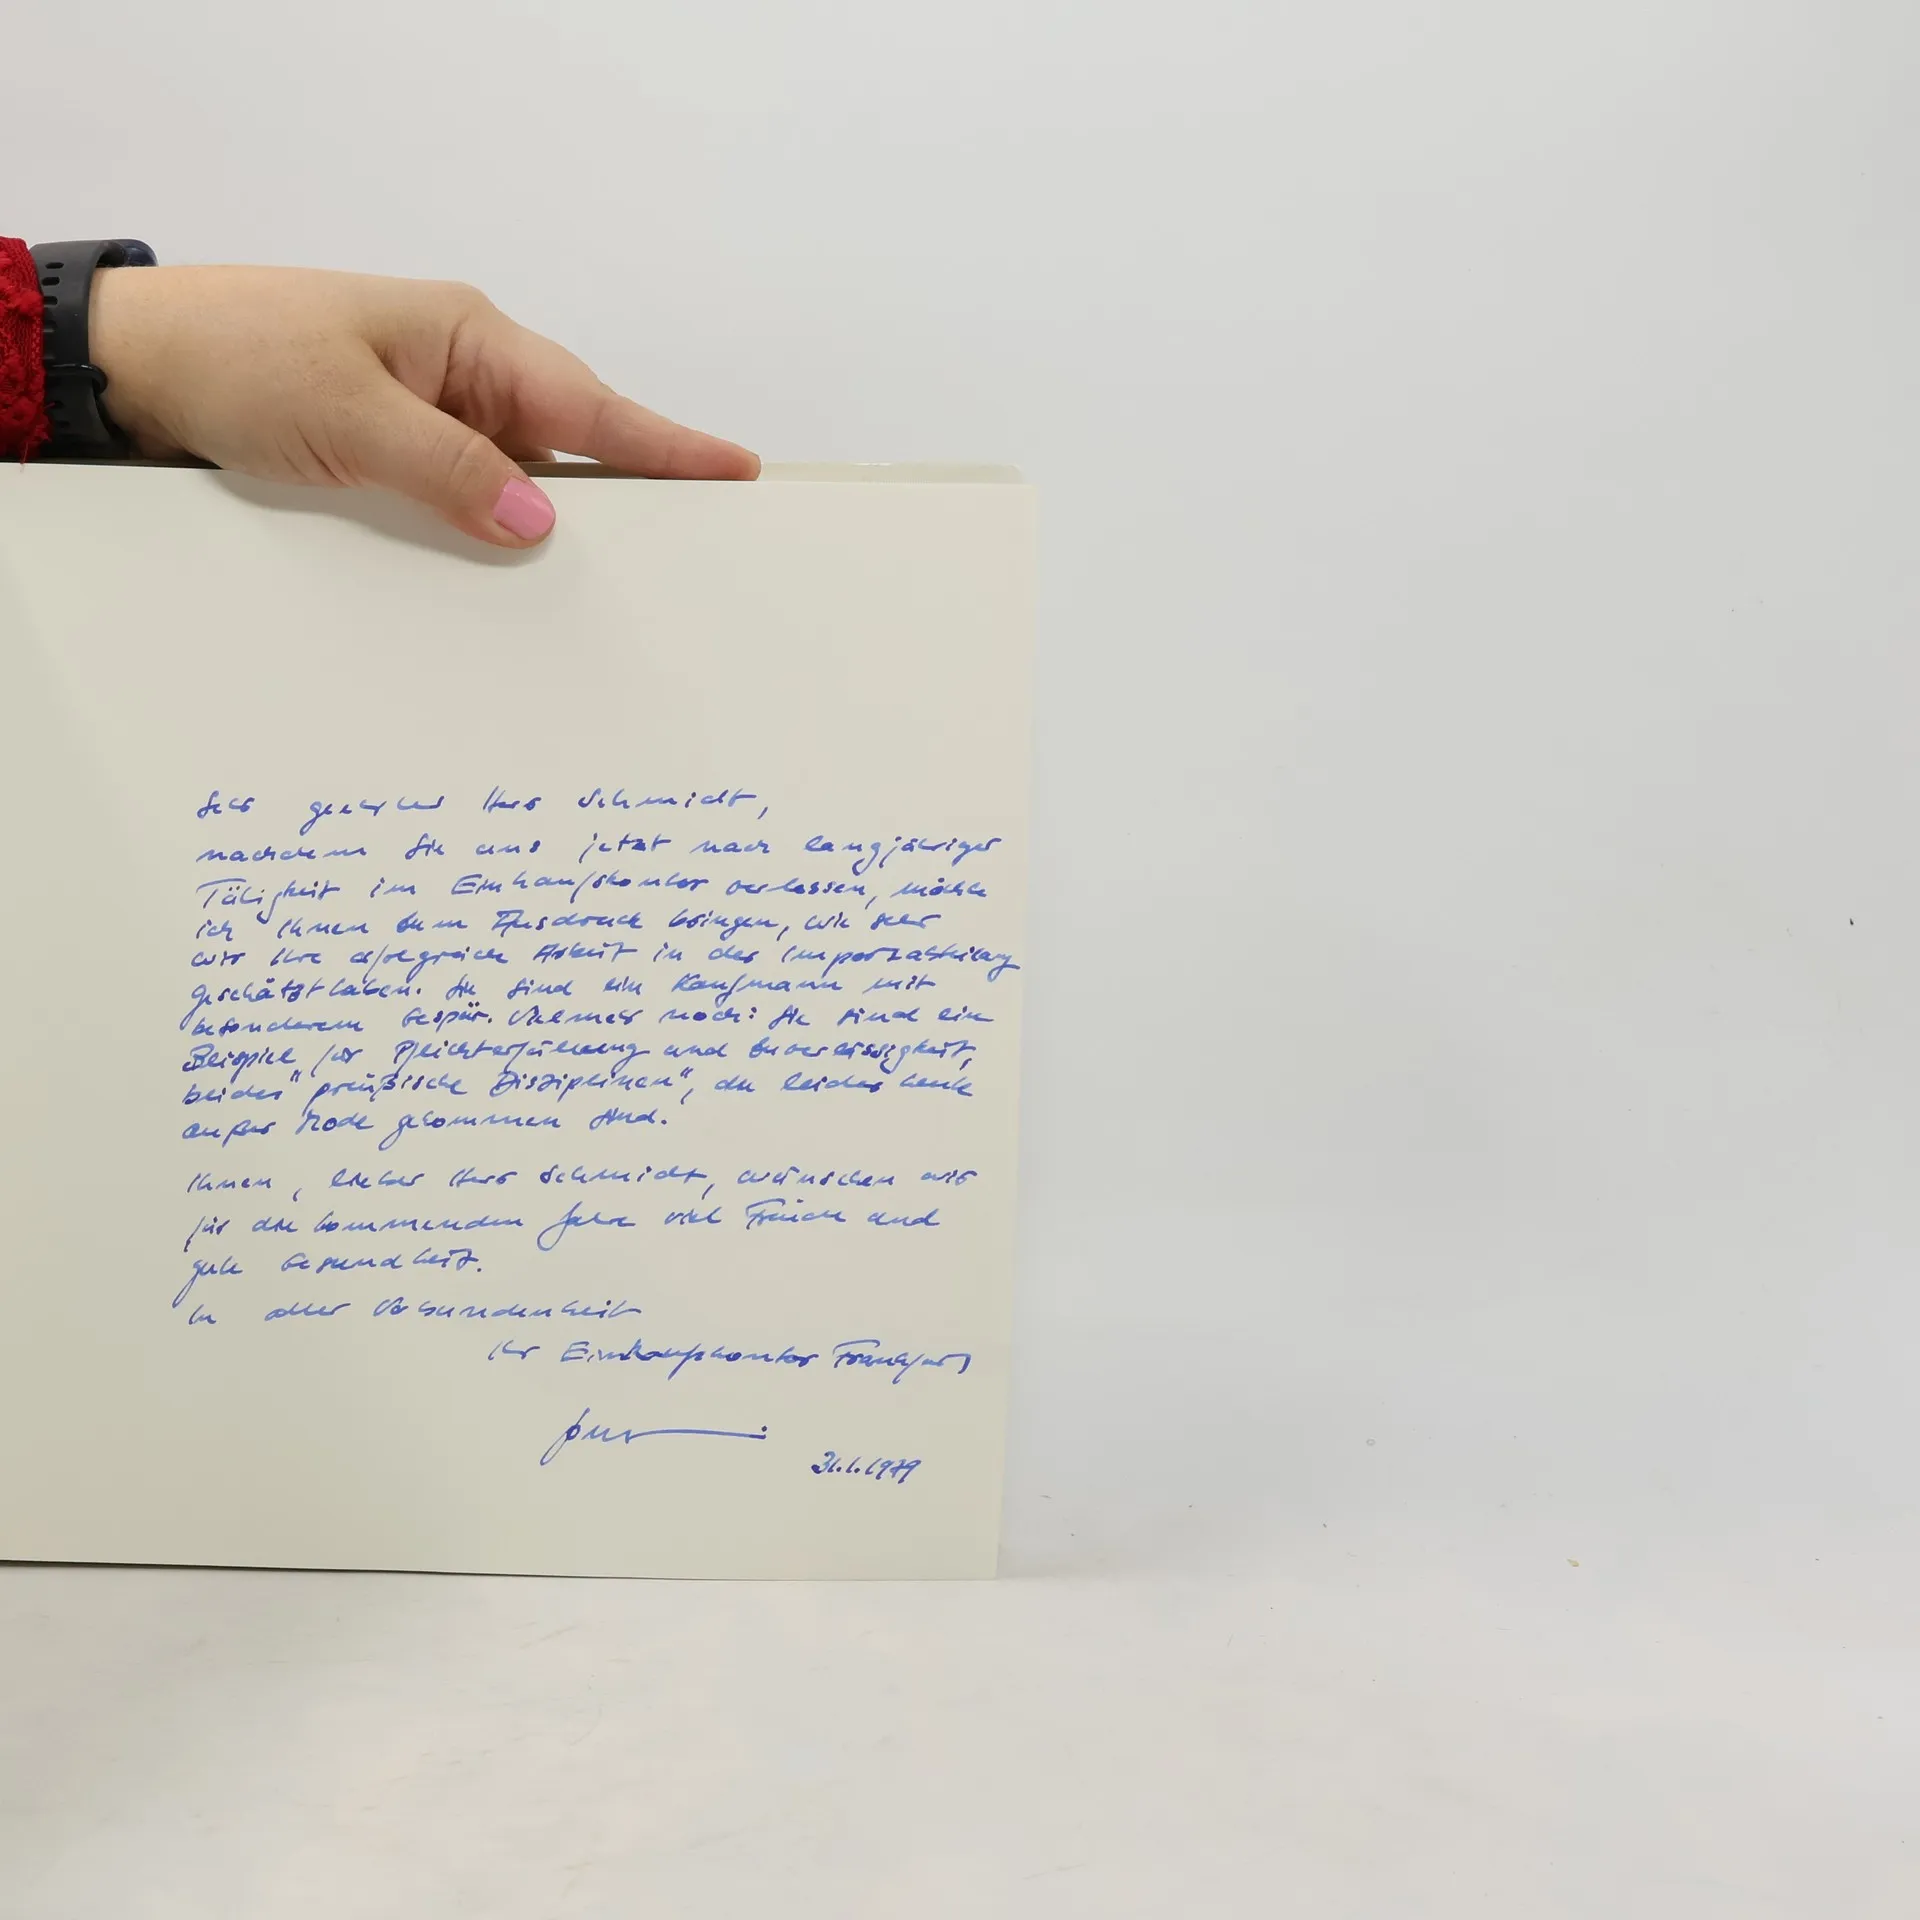 Sehr geehrter Herr Schmidt,
nachdem Sie uns jetzt nach langjähriger
Tätigkeit im Einkaufskontor verlassen, möchte
ich Ihnen zum Ausdruck bringen, wie sehr
wir Ihre erfolgreiche Arbeit in der Importabteilung
geschätzt haben. Sie sind ein Kaufmann mit
besonderem Gespür. Vielmehr noch: Sie sind ein
Beispiel für Pflichterfüllung und Zuverlässigkeit,
beides "preußische Disziplinen", die leider heute
außer Mode gekommen sind.
Ihnen, lieber Herr Schmidt, wünschen wir
für die kommenden Jahre viel Freude und
gute Gesundheit.
In alter Verbundenheit
Ihr Einkaufskontor Frankfurt
31.1.1979